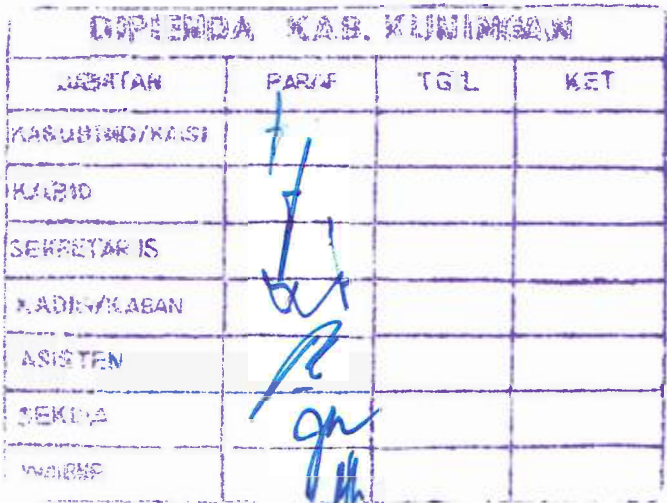 DIPENDA KAB. KUNINGAN
JABATAN PARAF TGL KET
KASUBBID/KASI
KABID
SEKRETARIS
KADIN/KABAN
ASISTEN
SEKDA